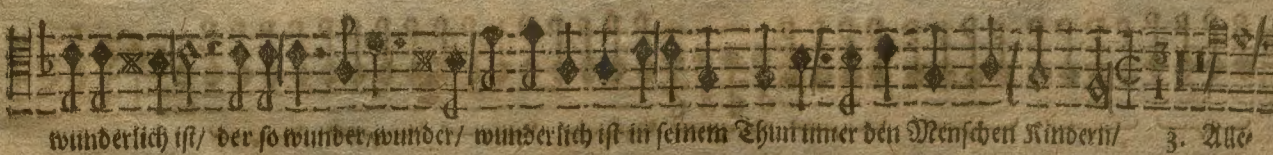 wunderlich ist/ der so wunder/wunder/ wunderlich ist in seinem Thun unter den Menschen Kindern/ 3. Alle-